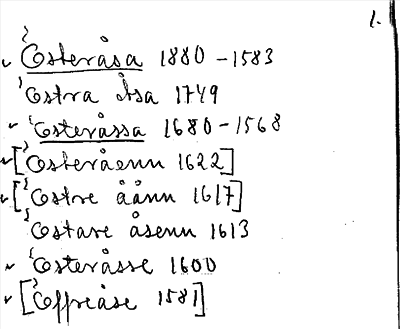 1.
Österåsa 1880 – 1583
Östra Åsa 1749
Österåssa 1680 – 1568
[Österåenn 1622]
[Östre åånn 1617]
Östare åsenn 1613
Österåsse 1600
[Öffreåse 1581]